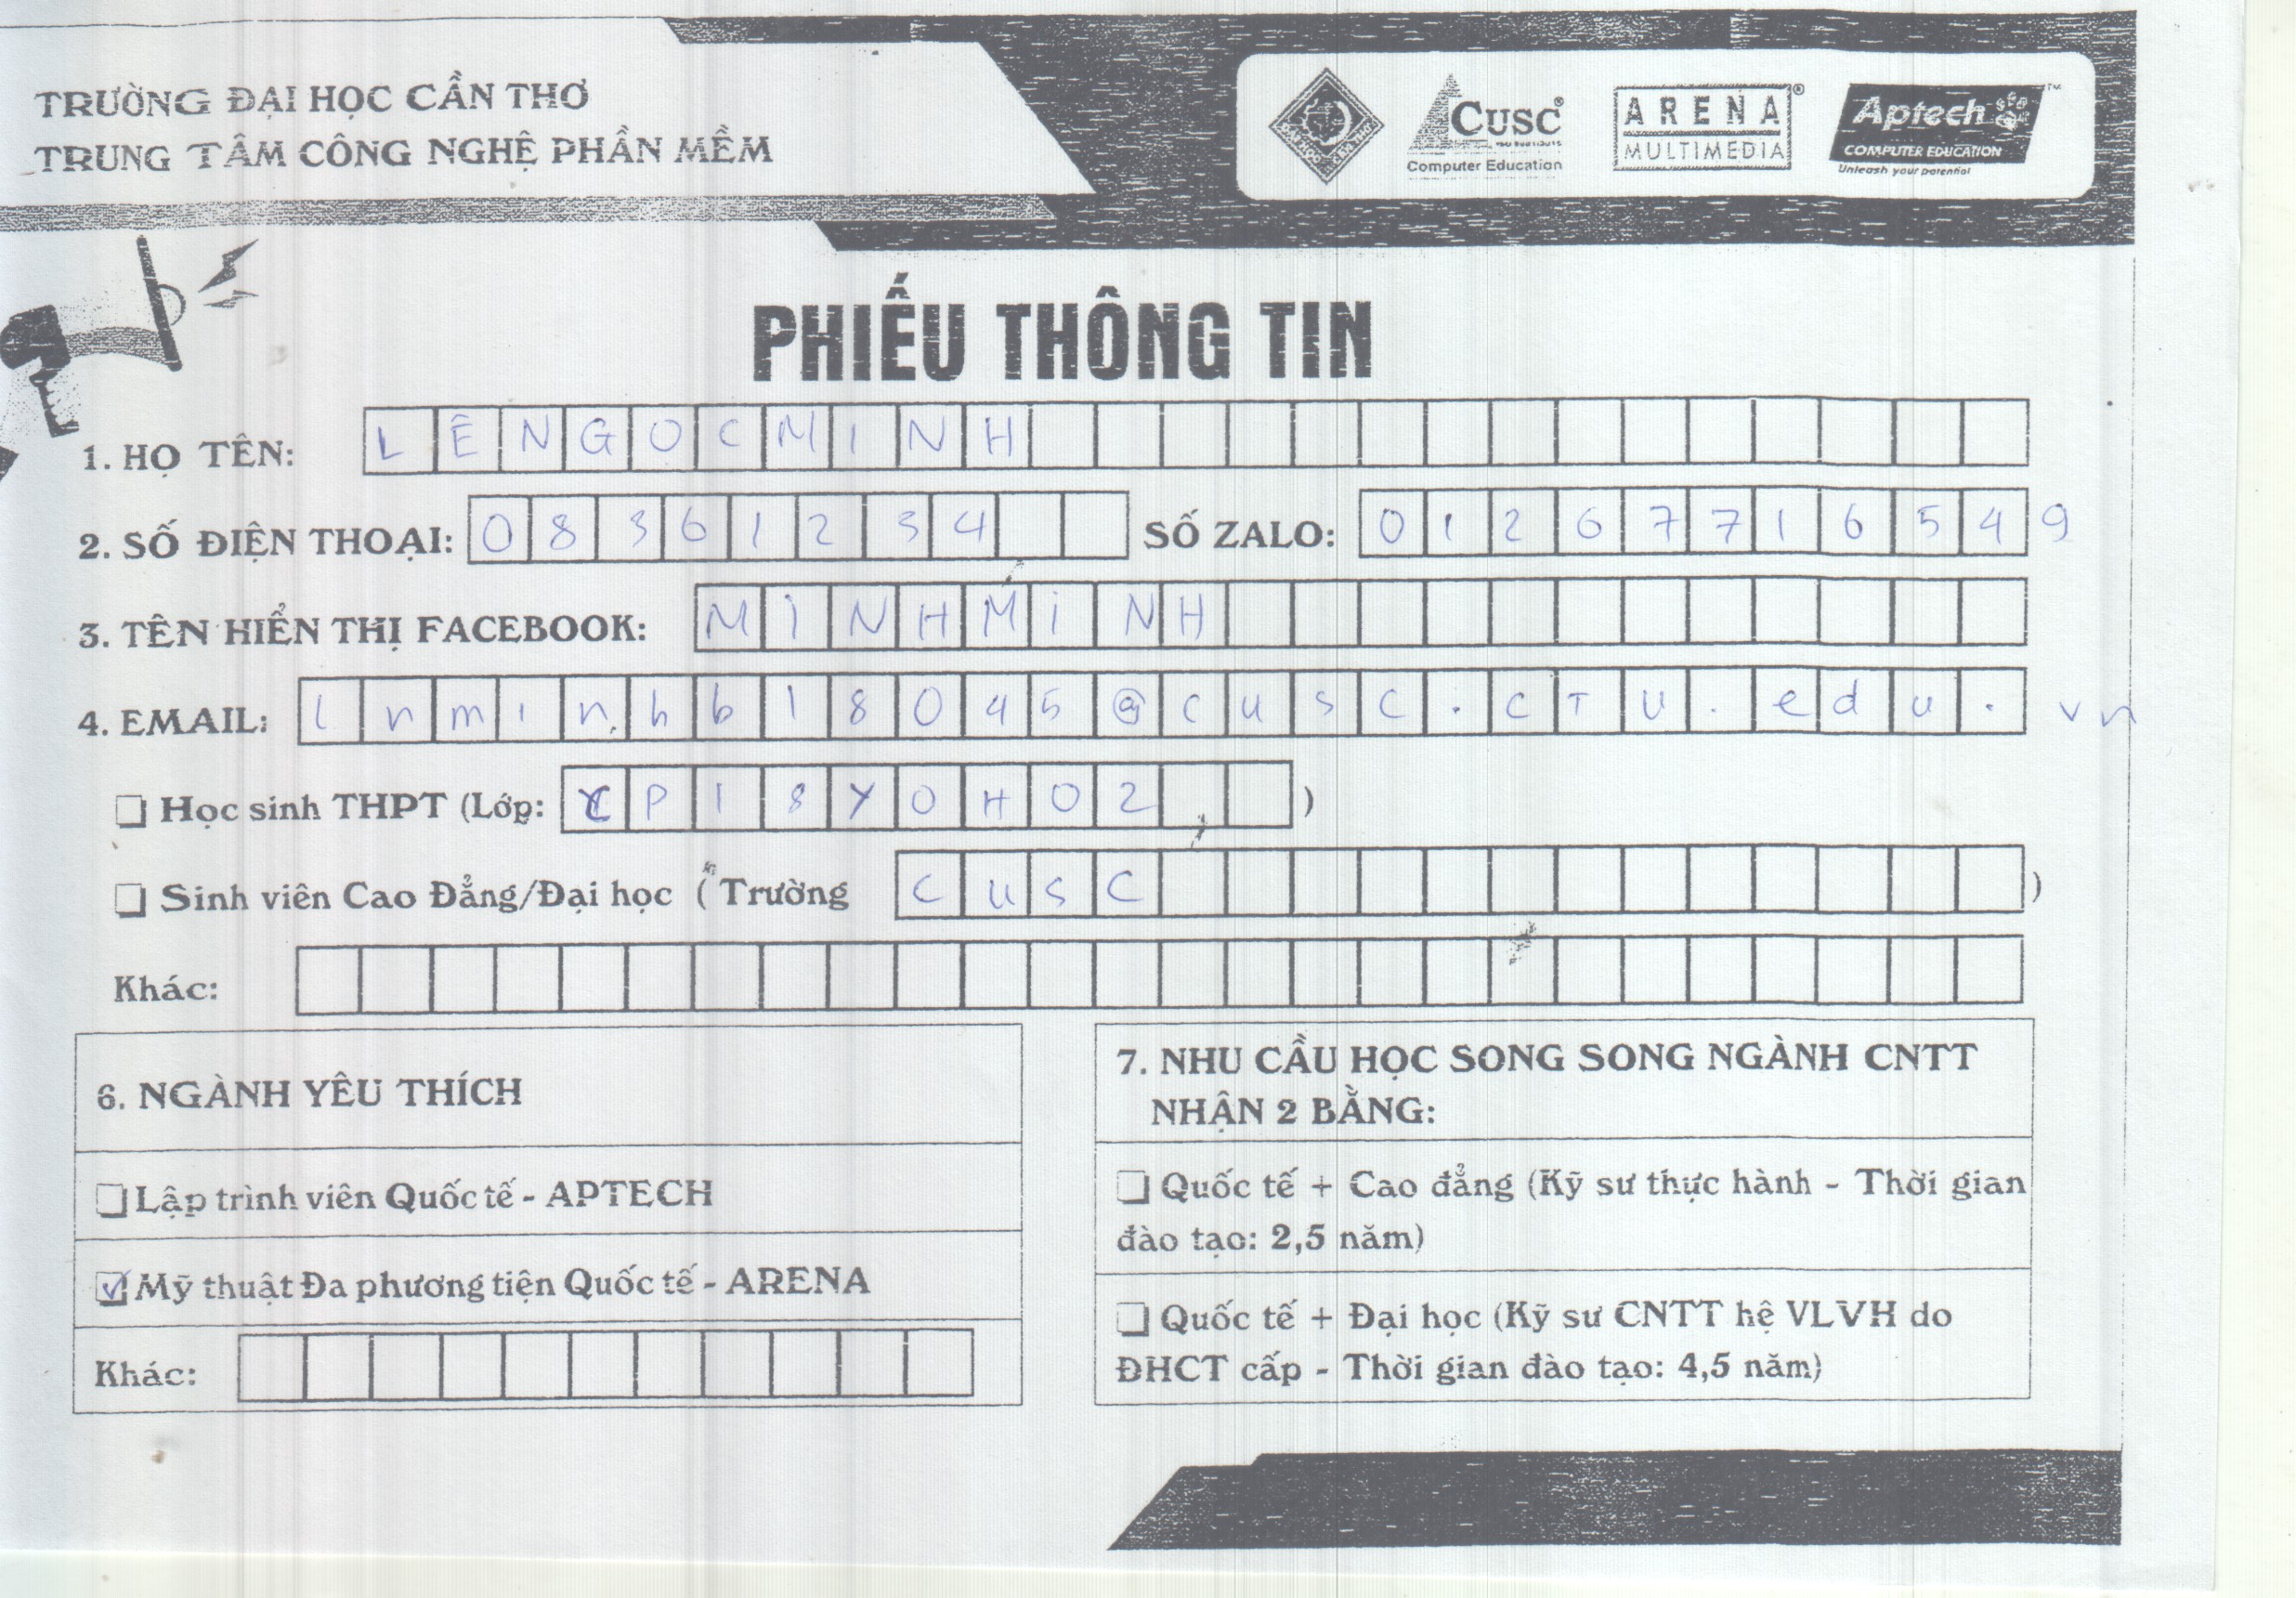 TRƯỜNG ĐẠI HỌC CẦN THƠ
TRUNG TÂM CÔNG NGHỆ PHẦN MỀM
CUSC
Computer Education
ARENA
MULTIMEDIA
Aptech
COMPUTER EDUCATION
Unleash your potential
PHIẾU THÔNG TIN
1. HỌ TÊN: LÊNGOCMINH
2. SỐ ĐIỆN THOẠI: 08361234 SỐ ZALO: 01267716549
3. TÊN HIỂN THỊ FACEBOOK: MINHMINH
4. EMAIL: lnminhb18045@cusc.ctu.edu.vn
Học sinh THPT (Lớp: CP18Y0H02)
Sinh viên Cao Đẳng/Đại học (Trường CUSC)
Khác:
6. NGÀNH YÊU THÍCH
Lập trình viên Quốc tế - APTECH
Mỹ thuật Đa phương tiện Quốc tế - ARENA
Khác:
7. NHU CẦU HỌC SONG SONG NGÀNH CNTT
NHẬN 2 BẰNG:
Quốc tế + Cao đẳng (Kỹ sư thực hành - Thời gian
đào tạo: 2,5 năm)
Quốc tế + Đại học (Kỹ sư CNTT hệ VLVH do
ĐHCT cấp - Thời gian đào tạo: 4,5 năm)